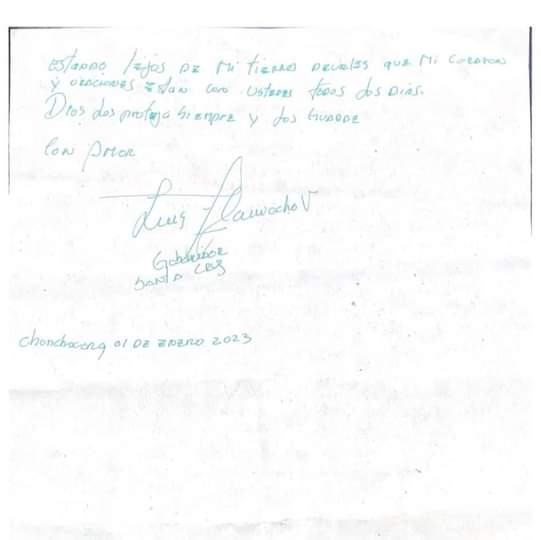 Estando lejos de mi tierra decirles que mi corazon
y oraciones estan con ustedes todos los dias.
Dios los proteja siempre y los guarde
Con Amor
Luis F Camacho V
Gobernador
Santa Cruz
Chonchocoro 01 de enero 2023